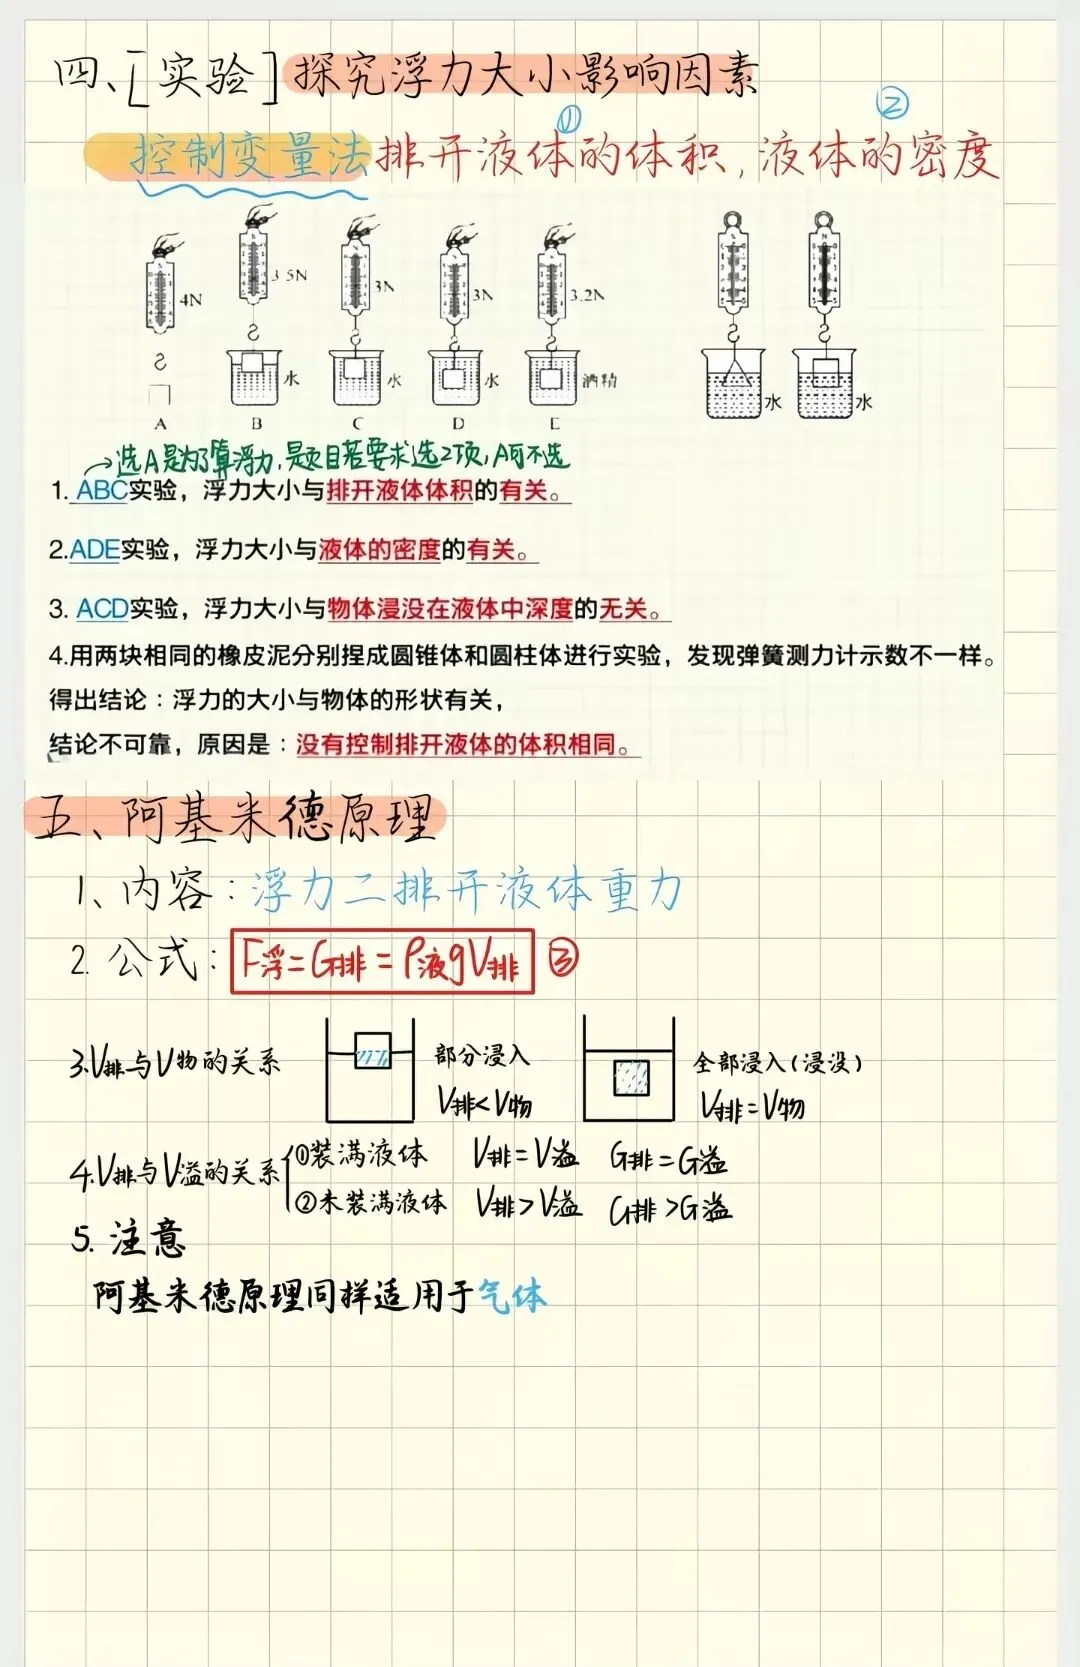 四、[实验]探究浮力大小影响因素
① ②
控制变量法 排开液体的体积,液体的密度
4N 3.5N 3N 3N 3.2N
水 水 水 酒精 水 水
A B C D E
选A是为了算浮力,是页目若要求选2项,A可不选
1. ABC实验，浮力大小与排开液体体积的有关。
2.ADE实验，浮力大小与液体的密度的有关。
3. ACD实验，浮力大小与物体浸没在液体中深度的无关。
4.用两块相同的橡皮泥分别捏成圆锥体和圆柱体进行实验，发现弹簧测力计示数不一样。
得出结论：浮力的大小与物体的形状有关，
结论不可靠，原因是：没有控制排开液体的体积相同。
五、阿基米德原理
1、内容:浮力二排开液体重力
2. 公式: F浮=G排=ρ液gV排 ③
3.V排与V物的关系 部分浸入 全部浸入(浸没)
V排<V物 V排=V物
4.V排与V溢的关系 ①装满液体 V排=V溢 G排=G溢
②未装满液体 V排>V溢 G排>G溢
5. 注意
阿基米德原理同样适用于气体